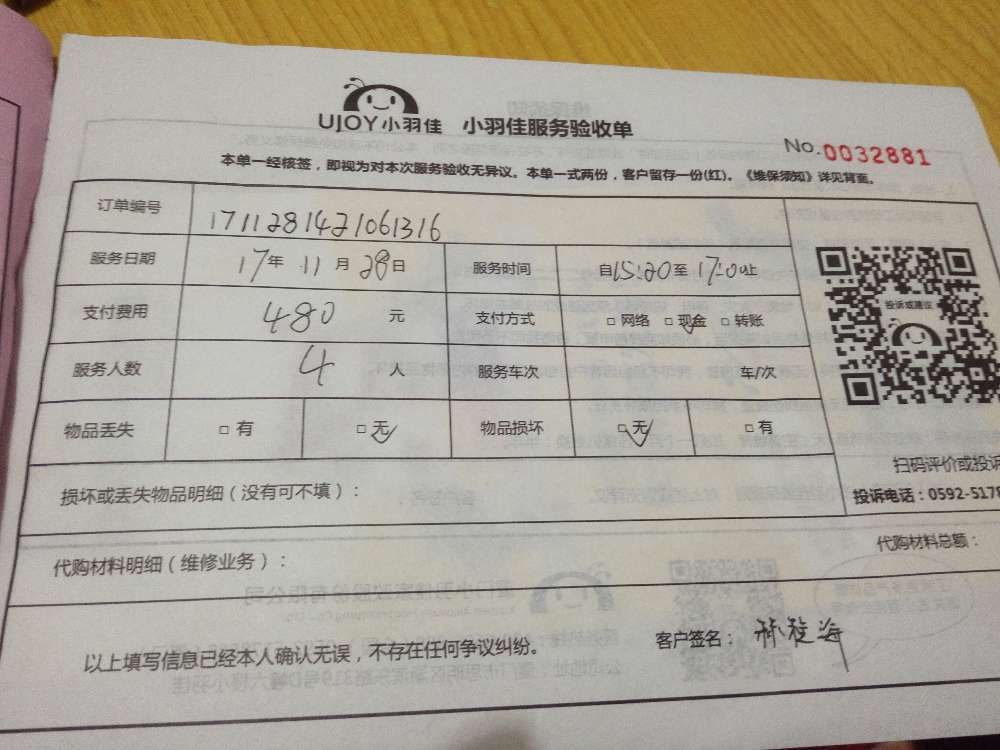 UJOY小羽佳 小羽佳服务验收单
No.0032881
本单一经核签，即视为对本次服务验收无异议。本单一式两份，客户留存一份(红)。《维保须知》详见背面。
订单编号 1711281421061316
服务日期 17年 11月 28日 服务时间 自15:20至17:0止
支付费用 480 元 支付方式 □网络 □现金 □转账
投诉或建议
服务人数 4 人 服务车次 车/次
物品丢失 □有 □无 物品损坏 □无 □有
扫码评价或投诉
损坏或丢失物品明细（没有可不填）：
投诉电话：0592-5178
代购材料明细（维修业务）：
代购材料总额：
以上填写信息已经本人确认无误，不存在任何争议纠纷。
客户签名：